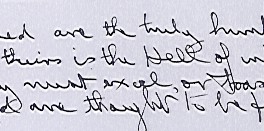 ed are the truly hum
theirs is the Hell of
y must excel, or
d are thought to be